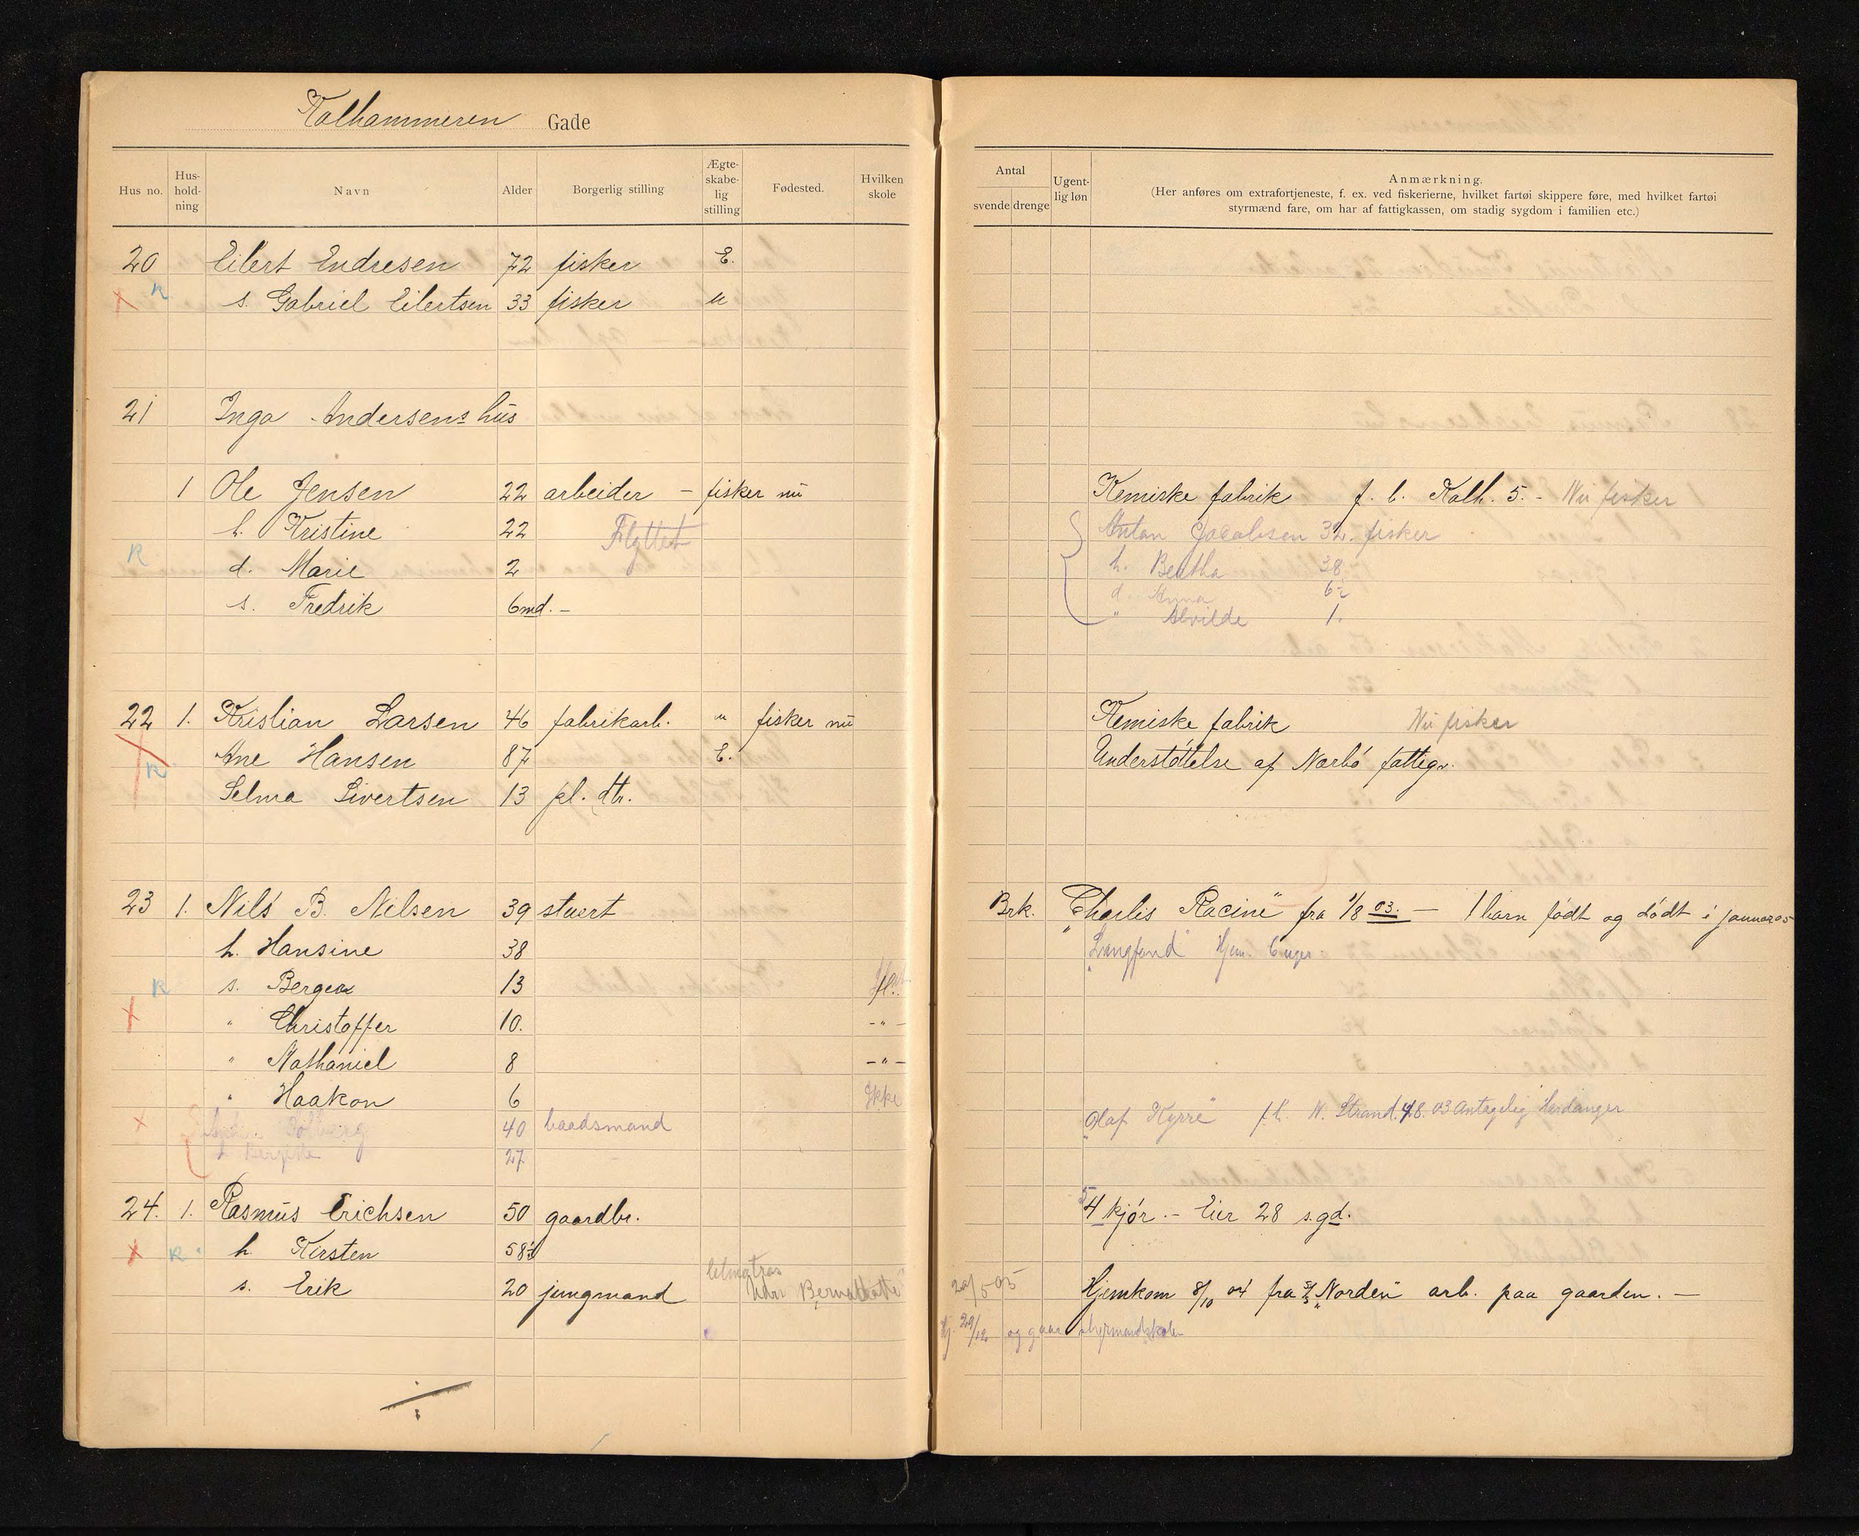 Kalhammeren Gade
Hus no. Hus-hold-ning Navn Alder Borgerlig stilling Ægte-skabe-lig stilling Fødested. Hvilken skole
Antal svende drenge Ugent-lig løn Anmærkning.
(Her anføres om extrafortjeneste, f. ex. ved fiskerierne, hvilket fartøi skippere føre, med hvilket fartøi
styrmænd fare, om har af fattigkassen, om stadig sygdom i familien etc.)
20 Eilert Endresen 72 fisker E.
s. Gabriel Eilertsen 33 fisker u
21 Inga Andersens hus
1 Ole Jensen 22 arbeider - fisker nu Kemiske fabrik f. b. Kalh. 5. - Nu fisker
h. Kristine 22 Flyttet Anton Jacobsen 32. fisker
d. Marie 2 h. Bertha 38
s. Fredrik 6 md. - d. Anna 6
" Alvilde 1.
22 1. Kristian Larsen 46 fabrikarb. " fisker nu Kemiske fabrik Nu fisker
Ane Hansen 87 E. Understøttelse af Nærbø fattigv.
Selma Sivertsen 13 pl. dtr.
23 1. Nils B. Nilsen 39 stuert Brk. "Charlis Racine" fra 1/8 03. - 1 barn født og dødt i januar 05
h. Hansine 38 "Langfand" Hjem.
s. Berger 13
" Christoffer 10. -"-
" Nathaniel 8 -"-
" Haakon 6 Ikke
40 baadsmand "Olaf Kyrre" f. h. N. Strand. 48. 03 Antagelig Hardanger
h. Bergitte 27
24. 1. Rasmus Erichsen 50 gaardbr. 4 kjør. - Eier 28 s.gd.
h. Kirsten 58
s. Erik 20 jungmand 20/5 05 Hjemkom 8/10 04 fra "Norden" arb. paa gaarden. -
Hj. 29/12 og gaar